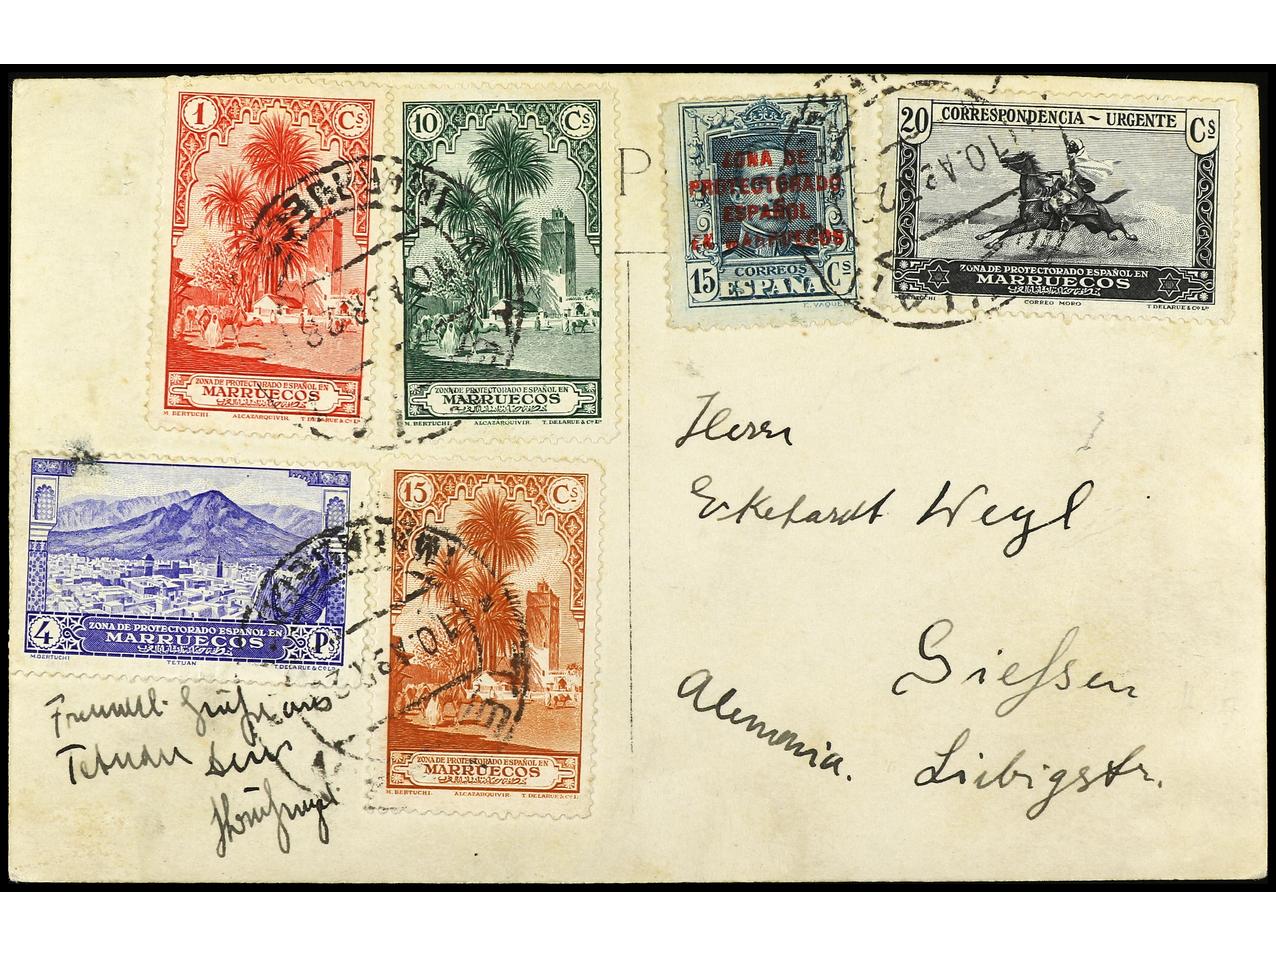 1 Cs
ZONA DE PROTECTORADO ESPAÑOL EN
MARRUECOS
M. BERTUCHI ALCAZARQUIVIR. T. DELARUE & Co LD
10 Cs
ZONA DE PROTECTORADO ESPAÑOL EN
MARRUECOS
M. BERTUCHI. ALCAZARQUIVIR. T. DELARUE & Co LD
P
ZONA DE
PROTECTORADO
ESPAÑOL
EN MARRUECOS
CORREOS
15 ESPAÑA Cs
20 CORRESPONDENCIA ~ URGENTE Cs
ZONA DE PROTECTORADO ESPAÑOL EN
MARRUECOS
CORREO MORO T. DELARUE & Co LD
4 ZONA DE PROTECTORADO ESPAÑOL EN Ps
MARRUECOS
M. BERTUCHI TETUAN T. DELARUE & Co LD
15 Cs
ZONA DE PROTECTORADO ESPAÑOL EN
MARRUECOS
M. BERTUCHI. ALCAZARQUIVIR. T. DELARUE & Co LD
Herrn
Ekkehardt Weyl
Giessen
Alemania.
Liebigstr.
Tetuan